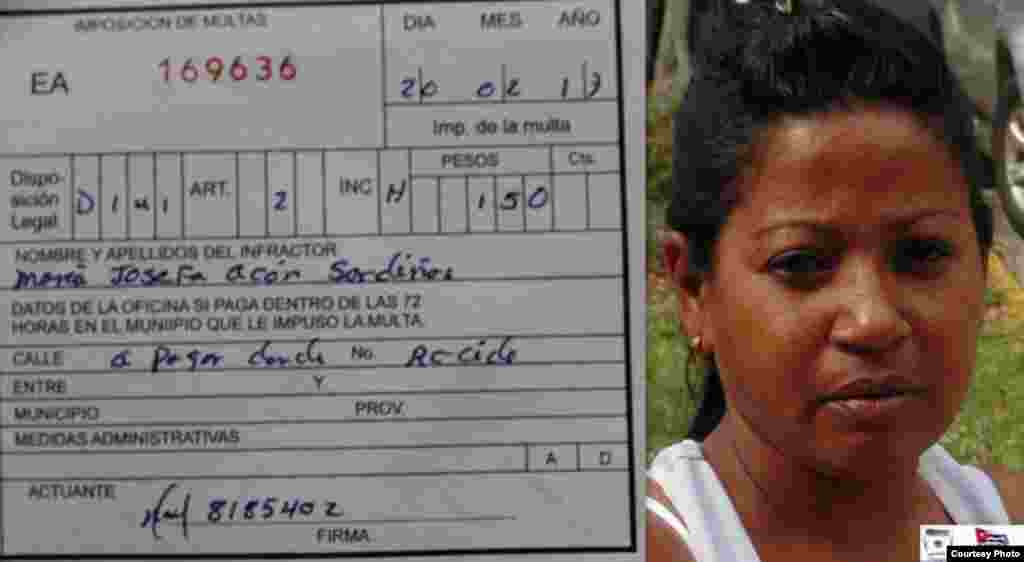 IMPOSICION DE MULTAS
EA 169636
DIA MES AÑO
20 02 13
Imp. de la multa
Dispo-
sición
Legal D 141 ART. 2 INC H
PESOS Cts.
150
NOMBRE Y APELLIDOS DEL INFRACTOR
María Josefa Acon Sardiñas
DATOS DE LA OFICINA SI PAGA DENTRO DE LAS 72
HORAS EN EL MUNIIPIO QUE LE IMPUSO LA MULTA
CALLE a pagar donde No. Reside
ENTRE Y
MUNICIPIO PROV.
MEDIDAS ADMINISTRATIVAS
A D
ACTUANTE
8185402
FIRMA
Courtesy Photo